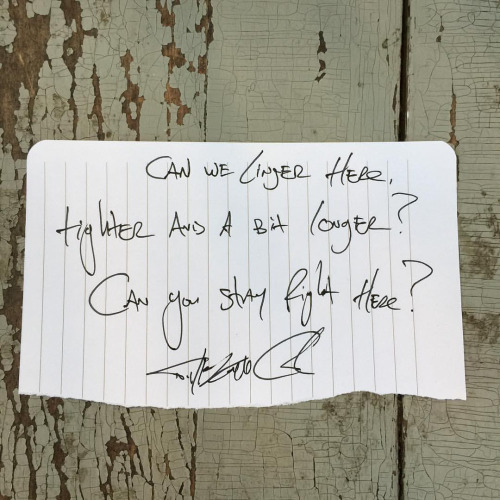 CAN WE LINGER HERE,
tigHTER AND A BIT longER?
CAN you STAY RigHt HERE?